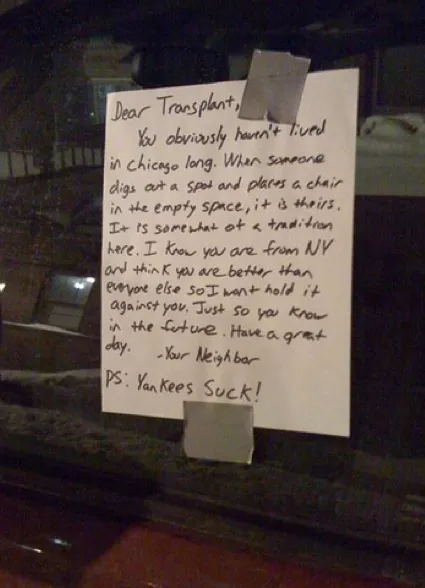 Dear Transplant,
You obviously haven't lived
in Chicago long. When someone
digs out a spot and places a chair
in the empty space, it is theirs.
It is somewhat of a tradition
here. I know you are from NY
and think you are better than
everyone else so I wont hold it
against you. Just so you know
in the future. Have a great
day. -Your Neighbor
PS: Yankees Suck!